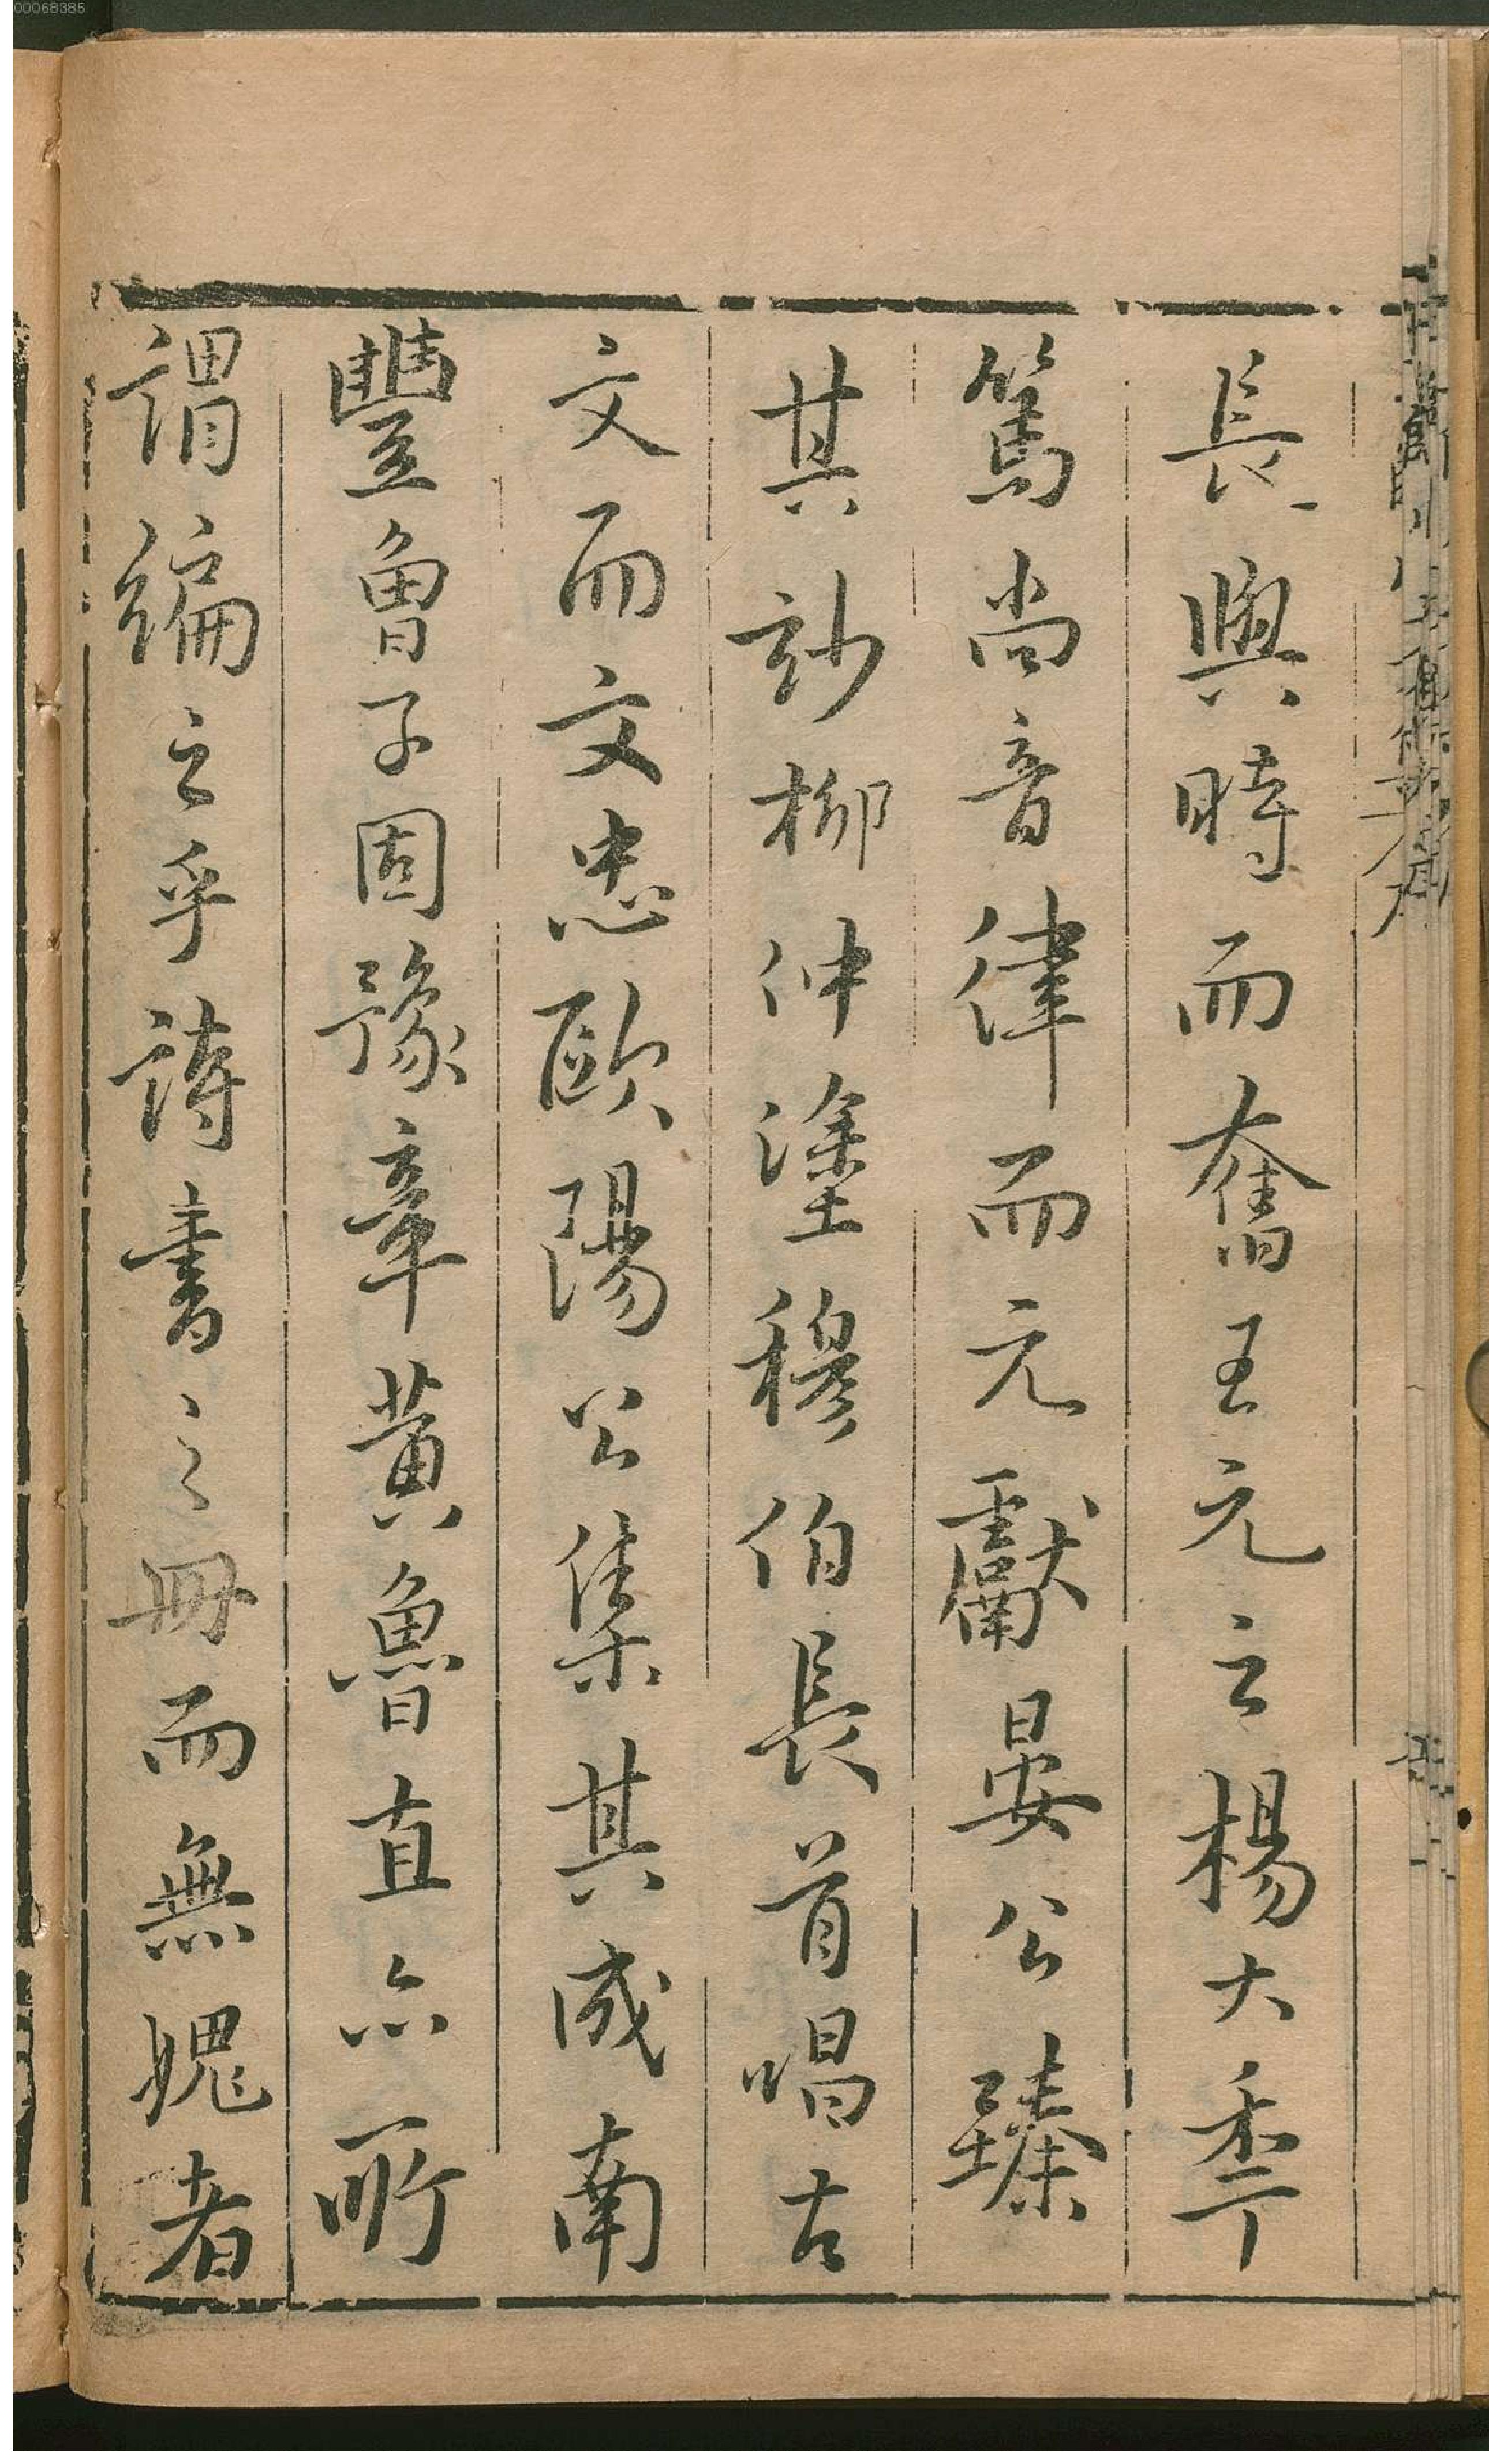 長與時而奮王元之楊大年
篤尚音律而元獻晏公臻
其玅柳仲塗穆伯長首唱古
文而文忠歐陽公集其成南
豐曾子固豫章黃魯直亦所
謂編之乎詩書之冊而無媿者
00068385